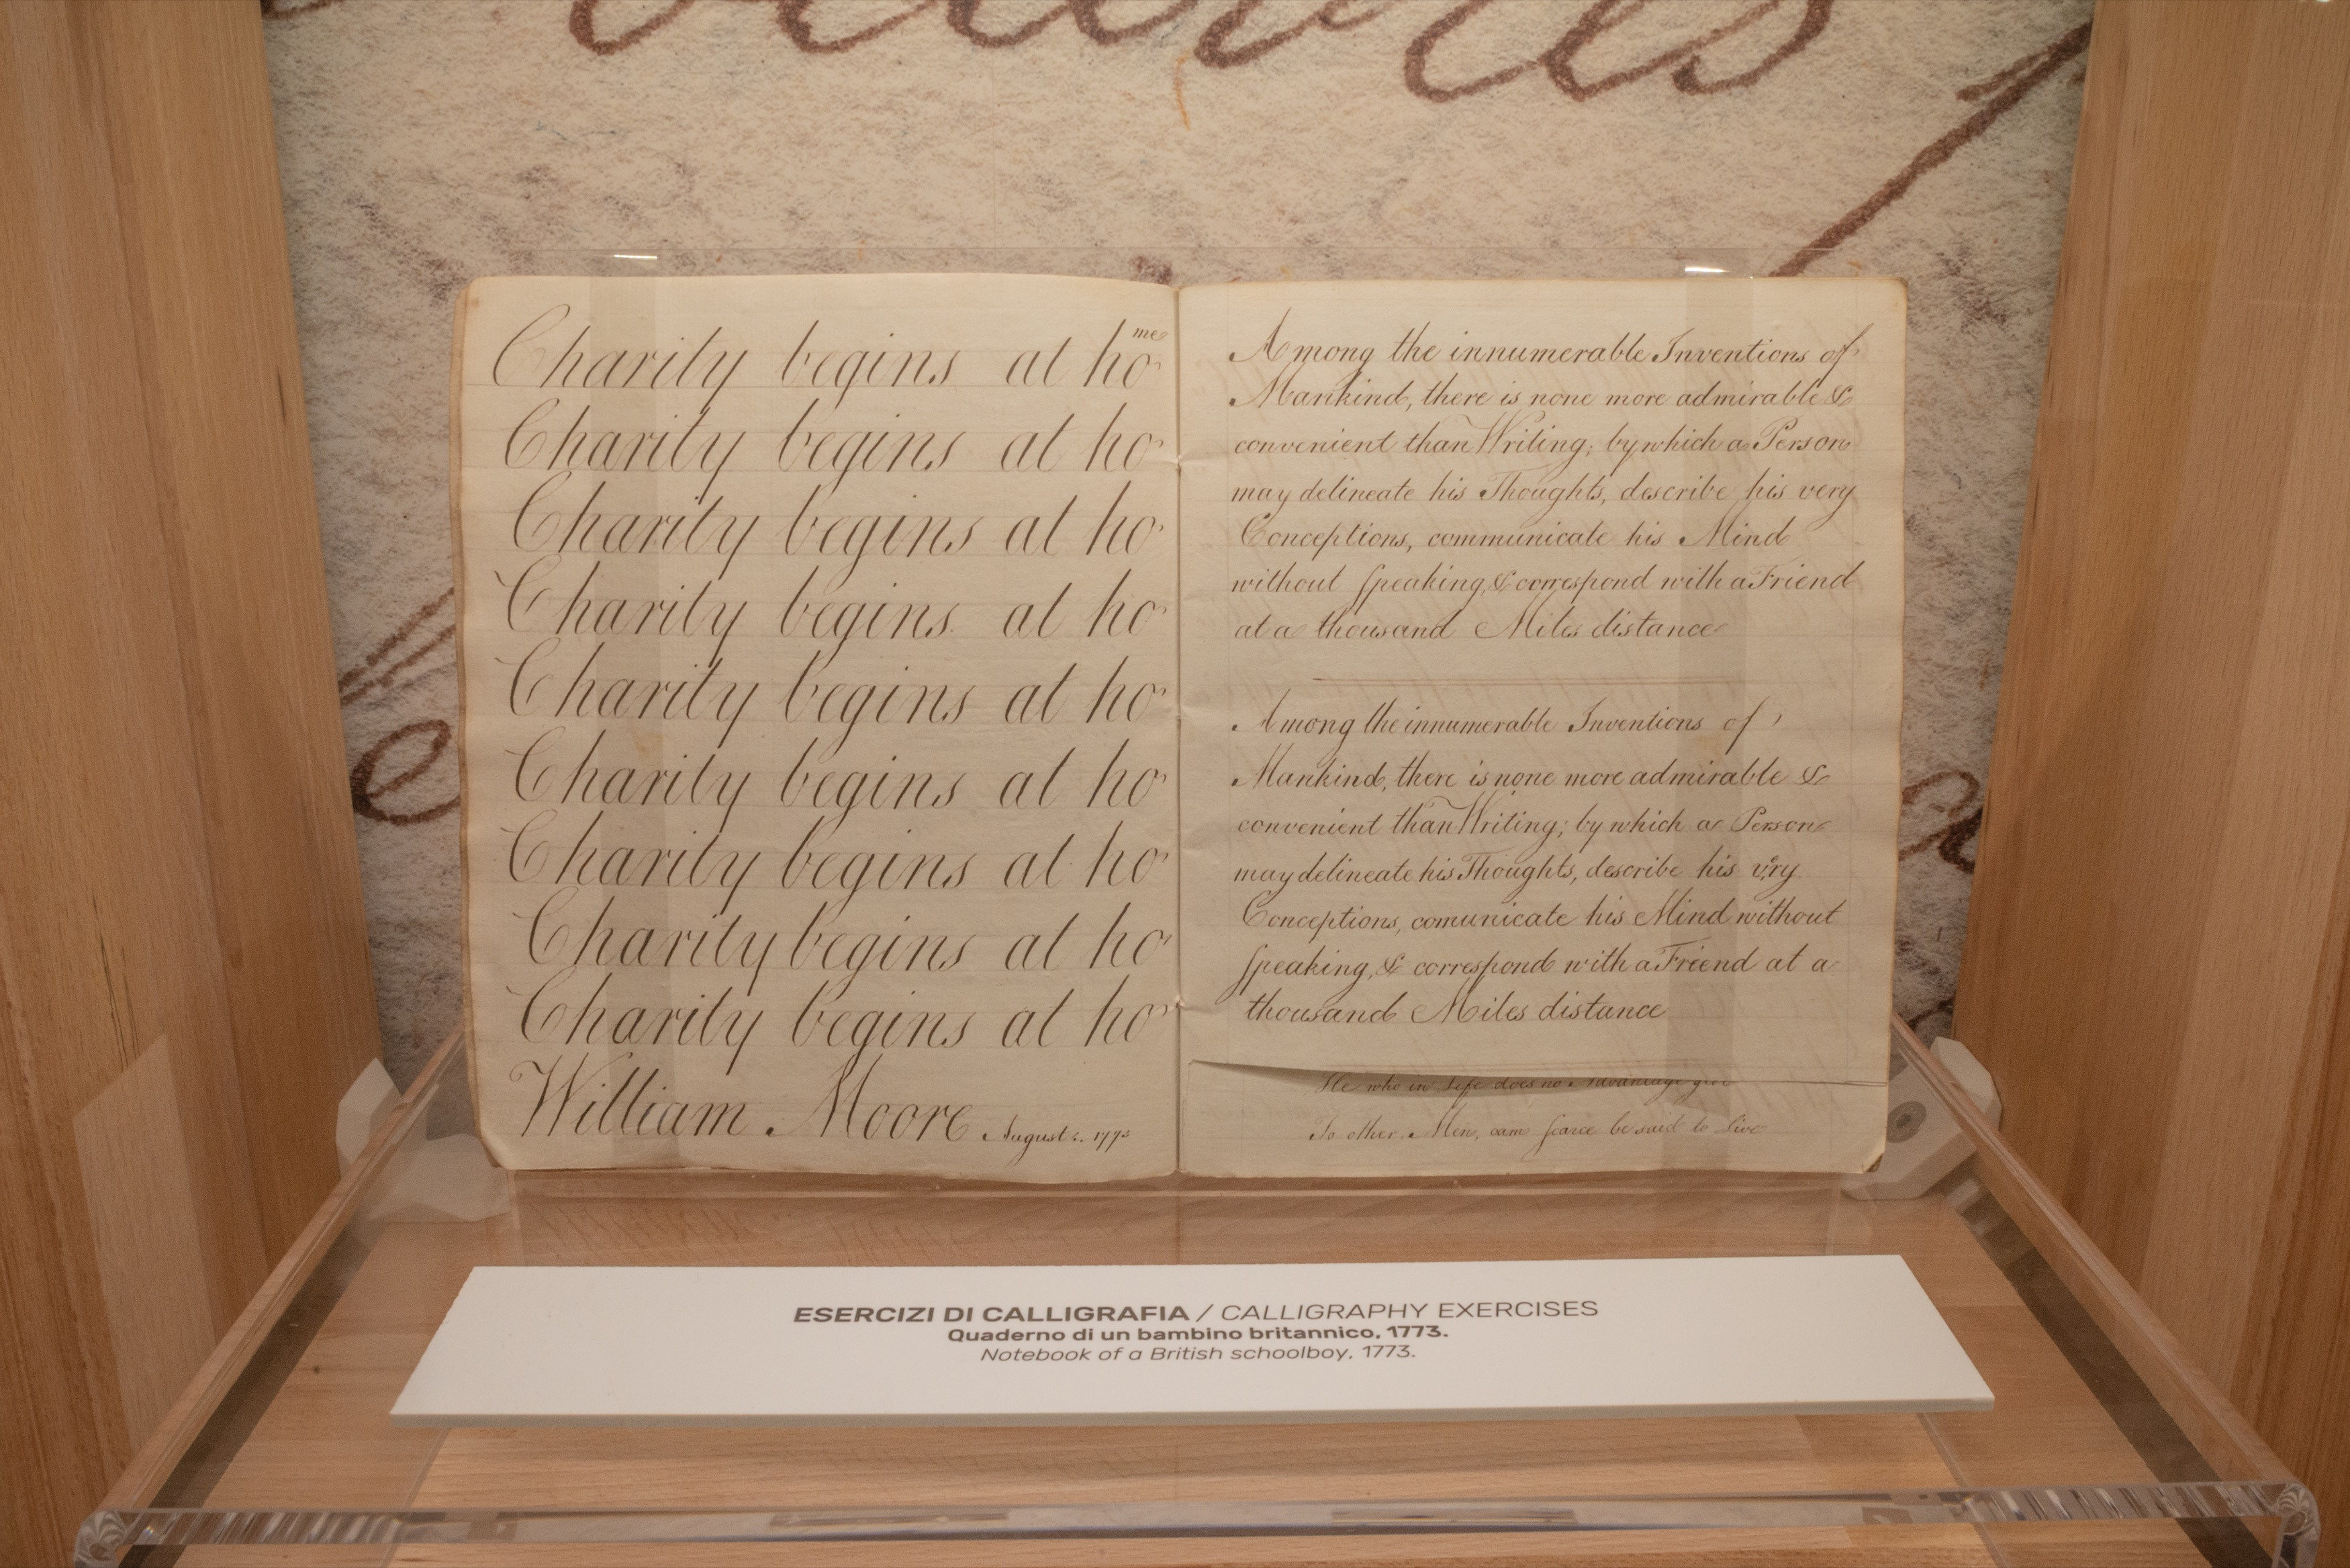 Charity begins at ho me
Charity begins at ho
Charity begins at ho
Charity begins at ho
Charity begins at ho
Charity begins at ho
Charity begins at ho
Charity begins at ho
Charity begins at ho
William Moore August 1773
Among the innumerable Inventions of
Mankind, there is none more admirable &
convenient than Writing; by which a Person
may delineate his Thoughts, describe his very
Conceptions, communicate his Mind
without ſpeaking, & correspond with a Friend
at a thousand Miles distance
Among the innumerable Inventions of
Mankind, there is none more admirable &
convenient than Writing; by which a Person
may delineate his Thoughts, describe his very
Conceptions, comunicate his Mind without
ſpeaking, & correspond with a Friend at a
thousand Miles distance
He who in Life does no Advantage give
To other Men, can ſcarce be said to Live
ESERCIZI DI CALLIGRAFIA / CALLIGRAPHY EXERCISES
Quaderno di un bambino britannico, 1773.
Notebook of a British schoolboy, 1773.